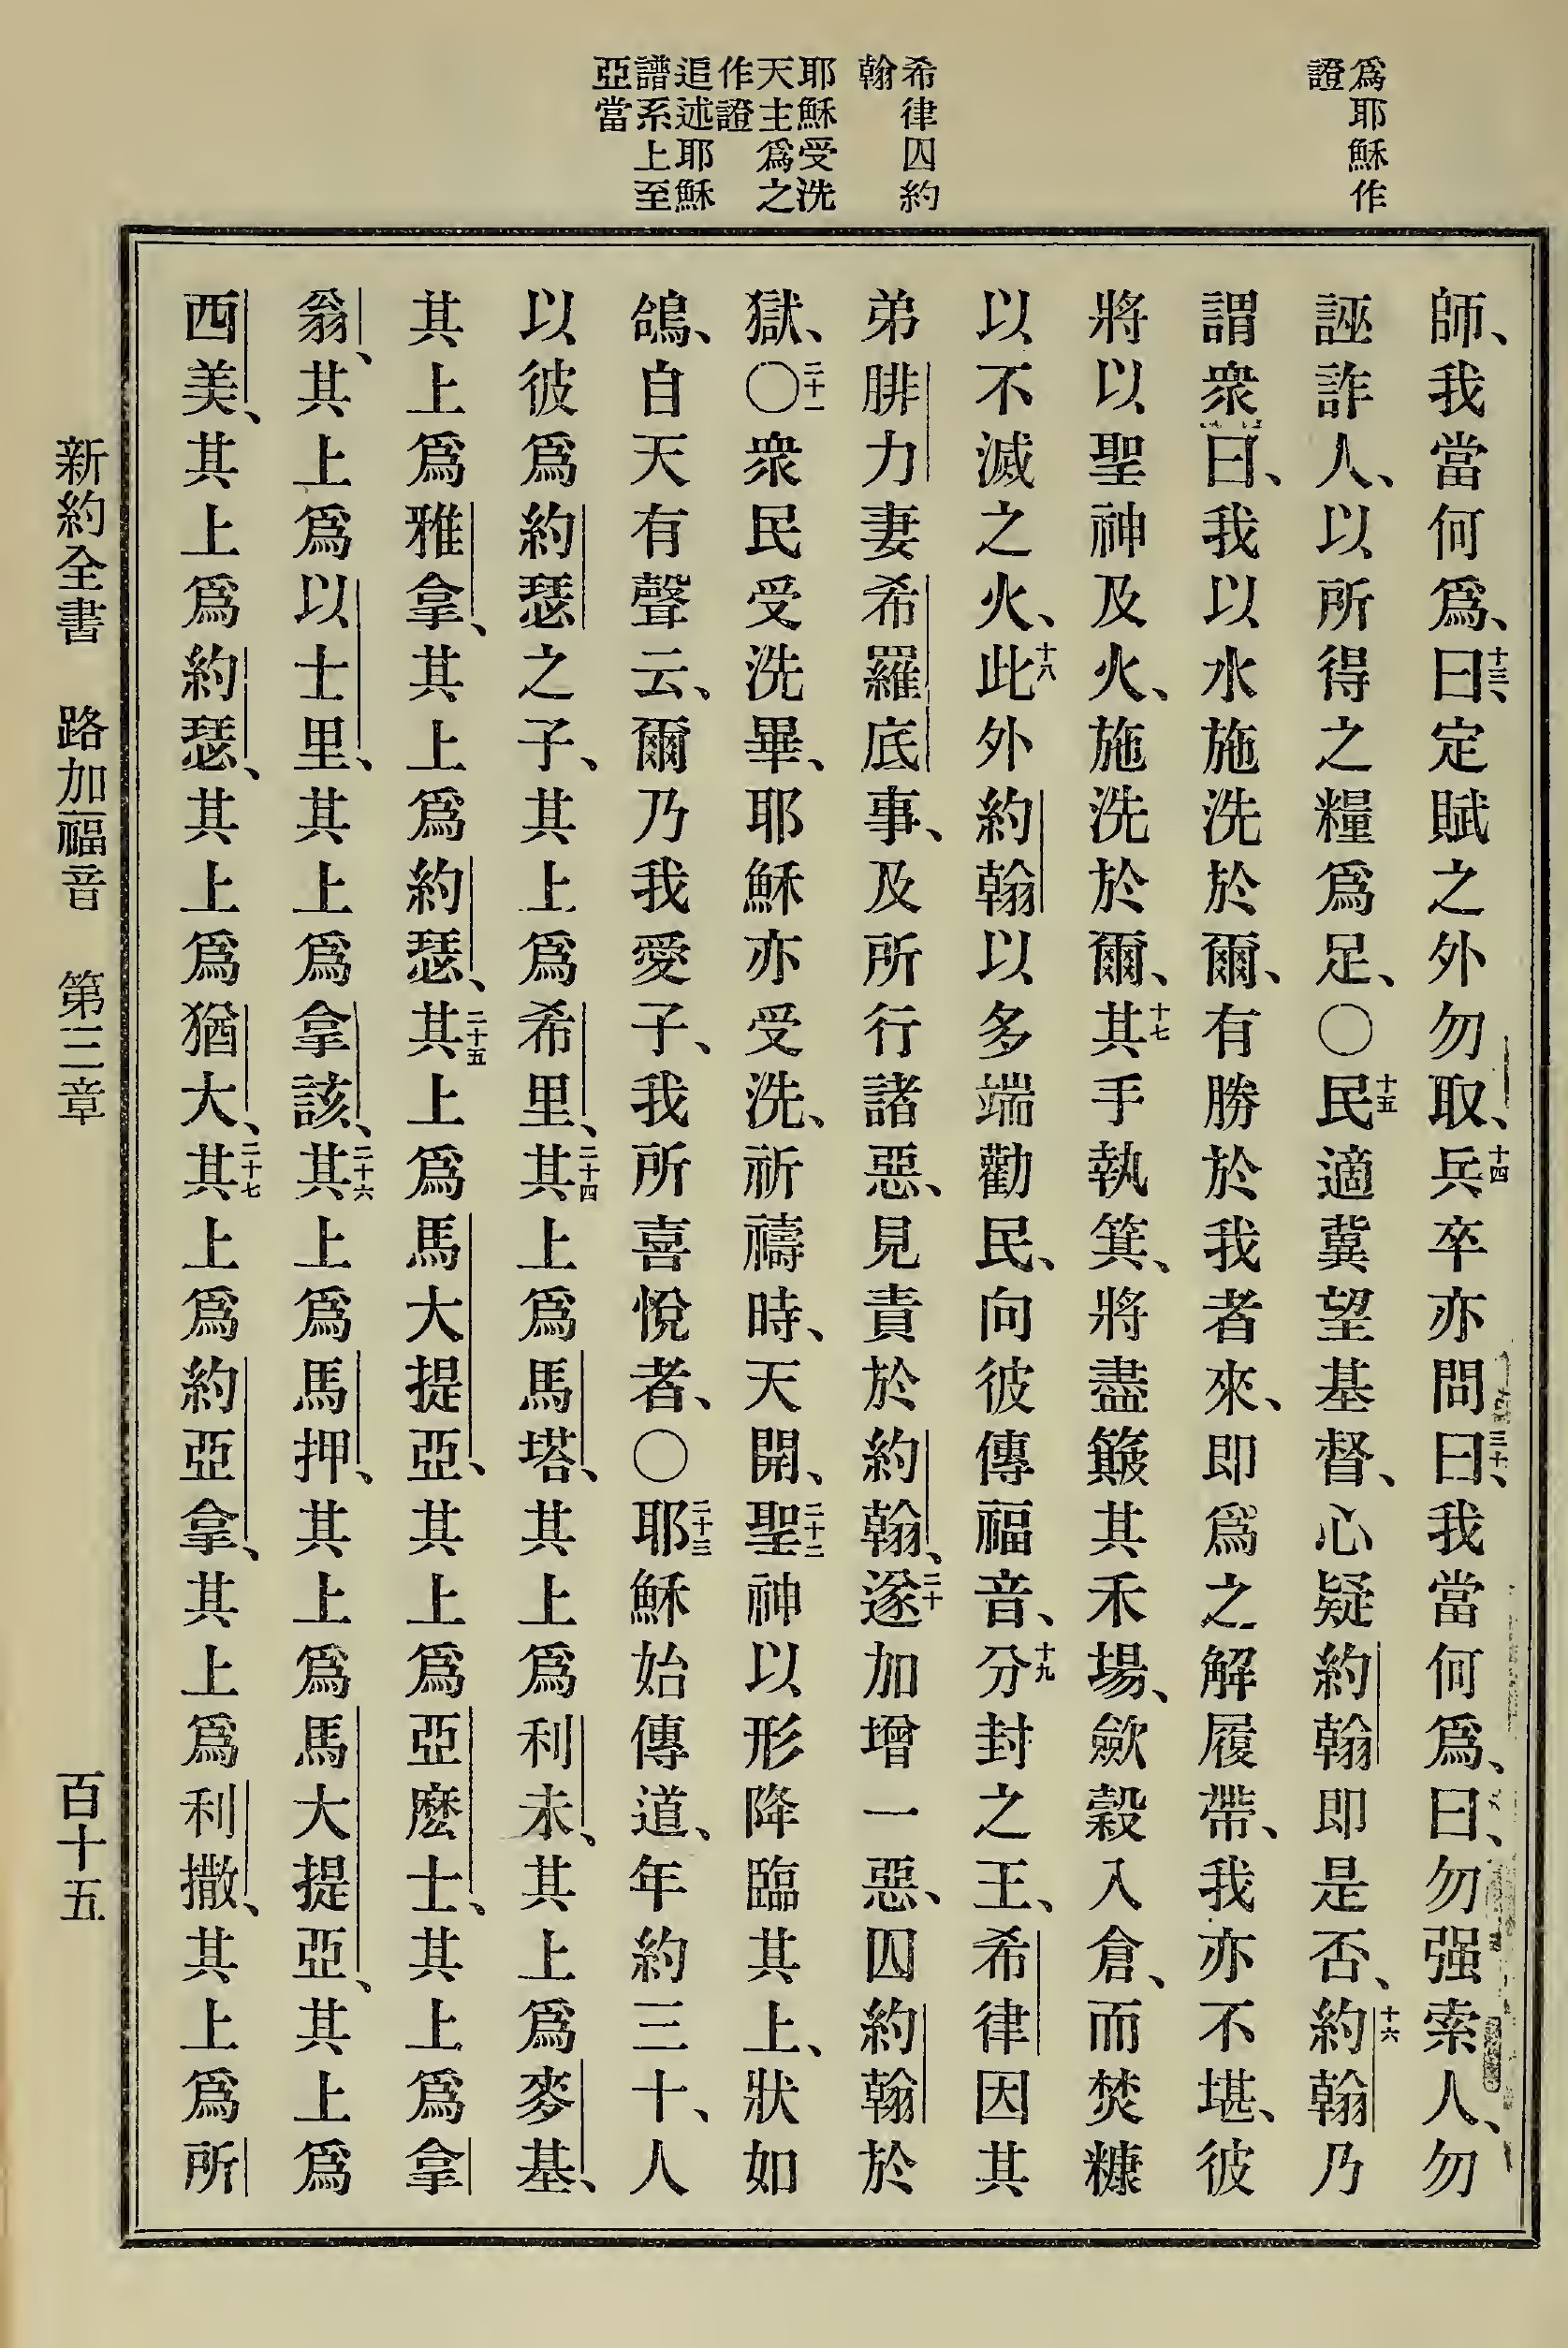 爲耶穌作
證
希律囚約
翰
耶穌受洗
天主爲之
作證
追述耶穌
譜系上至
亞當
師、我當何爲、十三曰、定賦之外勿取、十四兵卒亦問曰、我當何爲、曰、勿强索人、勿
誣詐人、以所得之糧爲足、〇十五民適冀望基督、心疑約翰即是否、十六約翰乃
謂衆曰、我以水施洗於爾、有勝於我者來、即爲之解履帶、我亦不堪、彼
將以聖神及火、施洗於爾、十七其手執箕、將盡簸其禾場、斂穀入倉、而焚糠
以不滅之火、十八此外約翰以多端勸民、向彼傳福音、十九分封之王、希律因其
弟腓力妻希羅底事、及所行諸惡、見責於約翰、二十遂加增一惡、囚約翰於
獄、〇二十一衆民受洗畢、耶穌亦受洗、祈禱時、天開、二十二聖神以形降臨其上、狀如
鴿、自天有聲云、爾乃我愛子、我所喜悅者、〇二十三耶穌始傳道、年約三十、人
以彼爲約瑟之子、其上爲希里、二十四其上爲馬塔、其上爲利未、其上爲麥基、
其上爲雅拿、其上爲約瑟、二十五其上爲馬大提亞、其上爲亞麼士、其上爲拿
翁、其上爲以士里、其上爲拿該、二十六其上爲馬押、其上爲馬大提亞、其上爲
西美、其上爲約瑟、其上爲猶大、二十七其上爲約亞拿、其上爲利撒、其上爲所
新約全書 路加福音 第三章 百十五